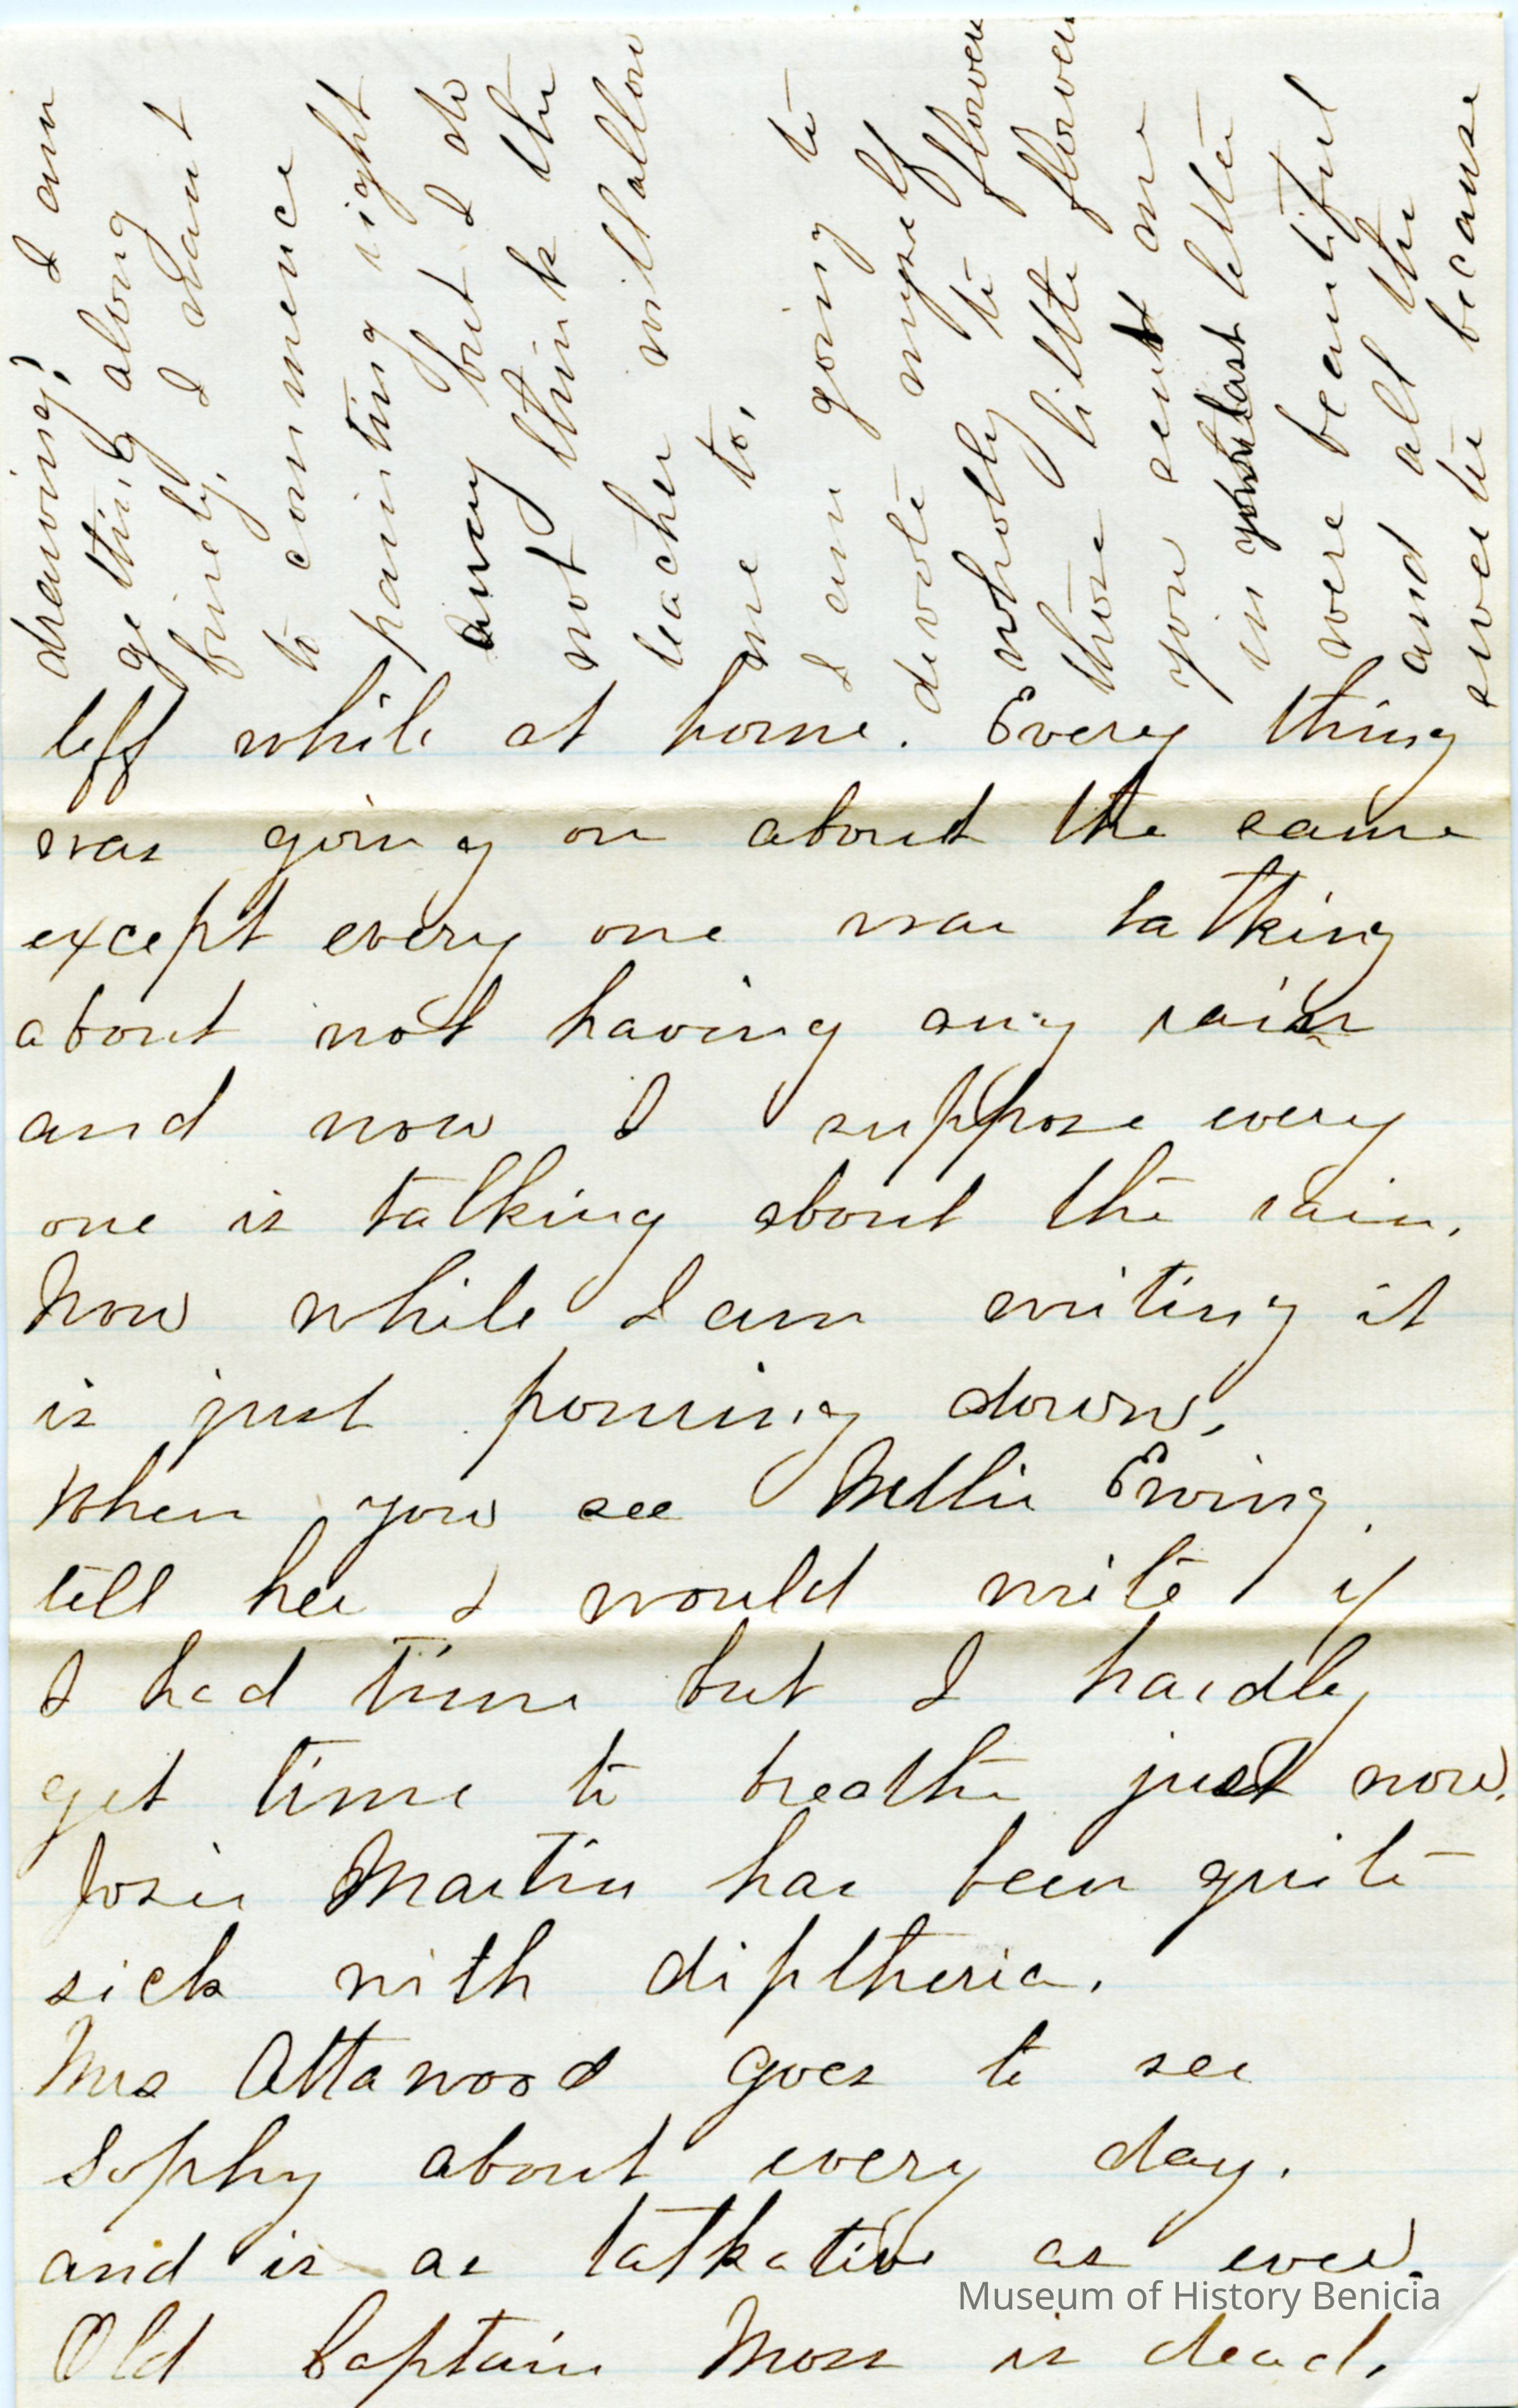 drawing? I am
getting along
finely. I want
to commence
painting right
away but I do
not think the
teacher will allow
me to,
I am going to
devote myself
wholly to flowers
those little flowers
you sent me
in your last letter
were beautiful
and all the
sweeter because
left while at home. Every thing
was going on about the same
except every one was talking
about not having any rain
and now I suppose every
one is talking about the rain.
Now while I am writing it
is just pouring down,
When you see Nellie Ewing.
tell her I would write if
I had time but I hardly
get time to breathe just now.
Josie Martin has been quite
sick with diptheria.
Mrs Attawood goes to see
Sophy about every day.
and is as talkative as ever.
Old Captain Moss is dead.
Museum of History Benicia